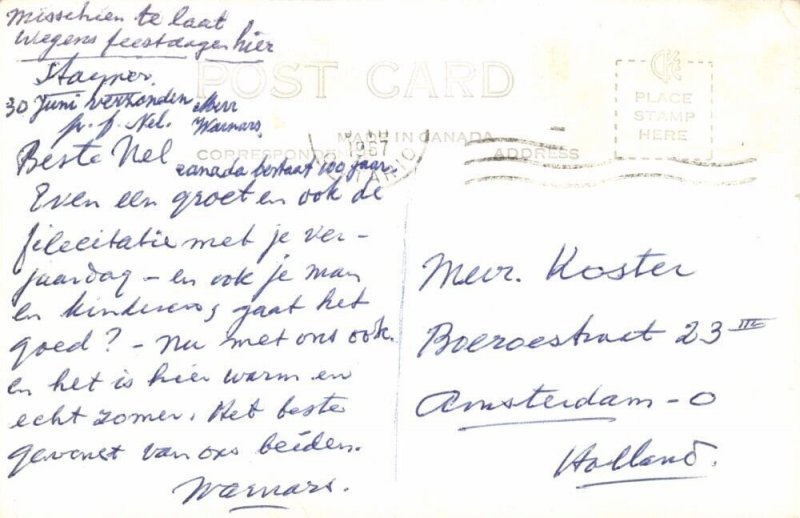 Misschien te laat
wegens feestdagen hier
Stayner.
30 Juni verzonden
p. f. Nel.
Mevr
Warnars
Beste Nel
canada bestaat 100 jaar
Even een groet en ook de
filecitatie met je ver-
jaardag - en ook je man
en kinderen, gaat het
goed? - Nu met ons ook.
en het is hier warm en
echt zomer. Het beste
gewenst van ons beiden.
Warnars.
POST CARD
MADE IN CANADA
CORRESPONDENCE
ADDRESS
1967
ONTARIO
CK
PLACE
STAMP
HERE
Mevr. Koster
Boeroestraat 23 III
Amsterdam - O
Holland.